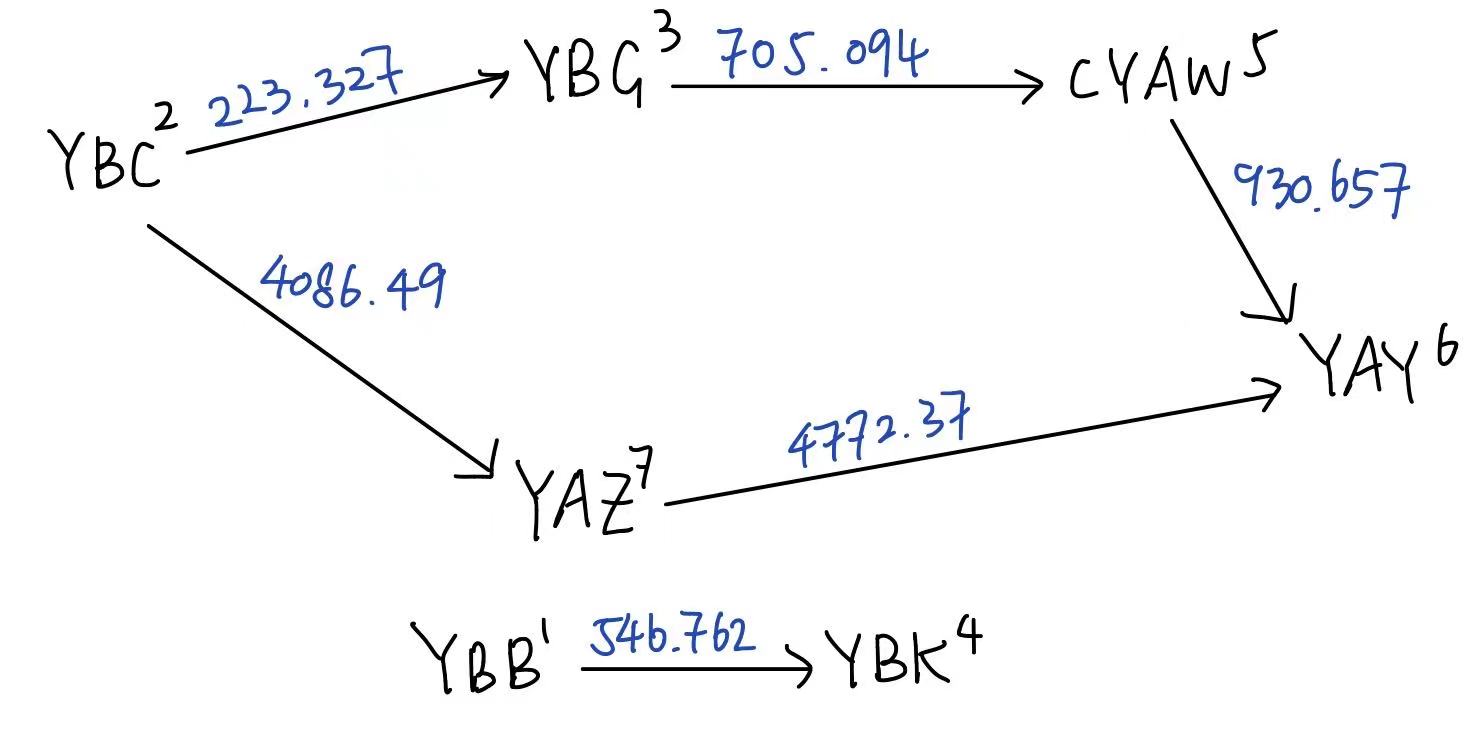 YBC² 223.327 YBG³ 705.094 CYAW⁵
930.657
4086.49
YAY⁶
4772.37
YAZ⁷
YBB¹ 546.762 YBK⁴